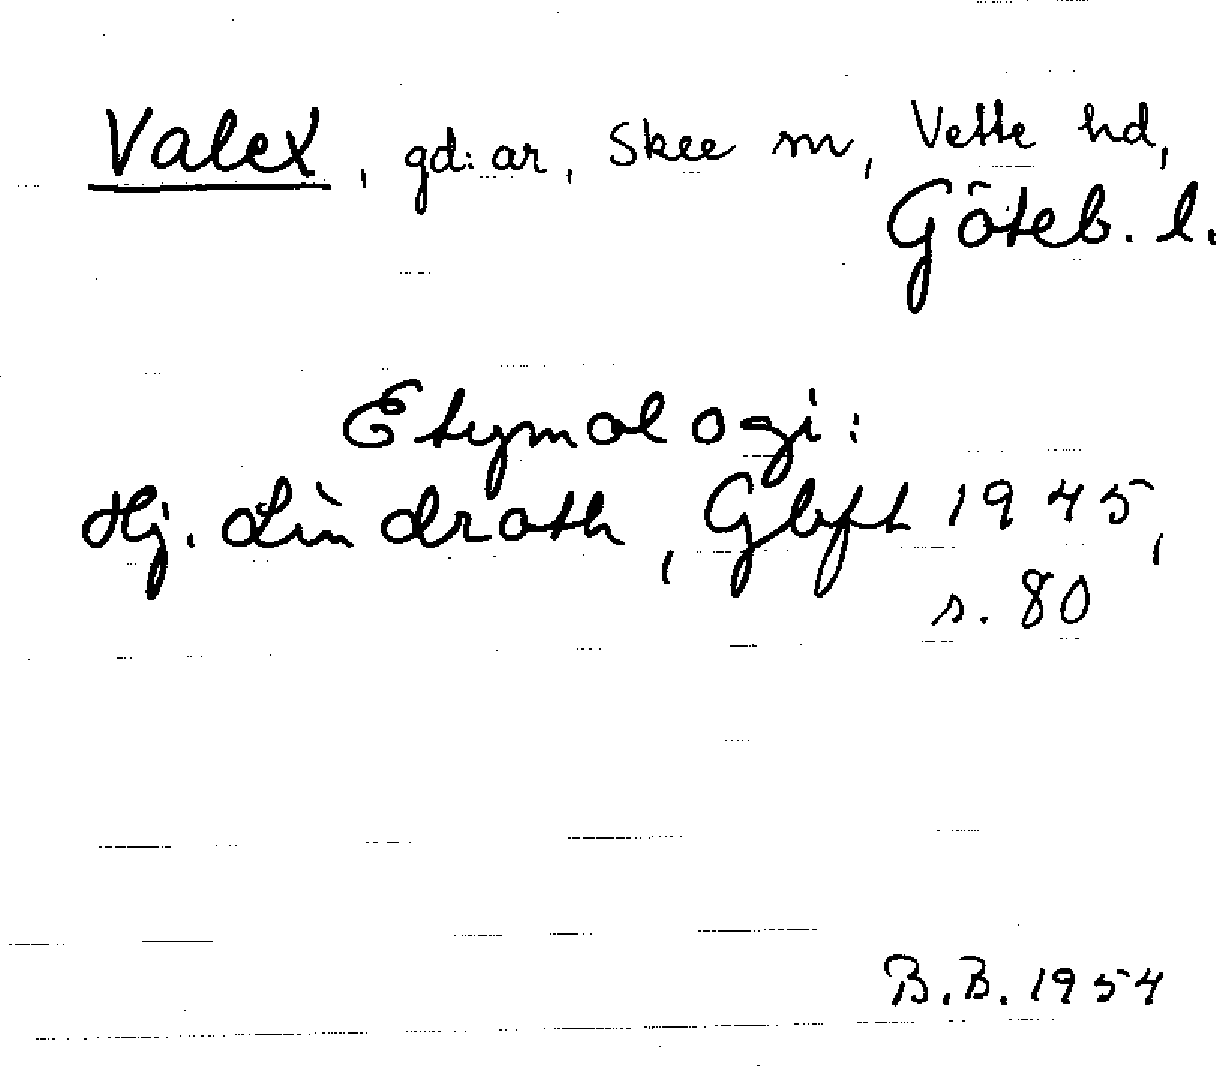 Valex, gd:ar, Skee sn, Vette hd,
Göteb. l.
Etymologi:
Hj. Lindroth, Gbft 1945,
s. 80
B.B. 1954